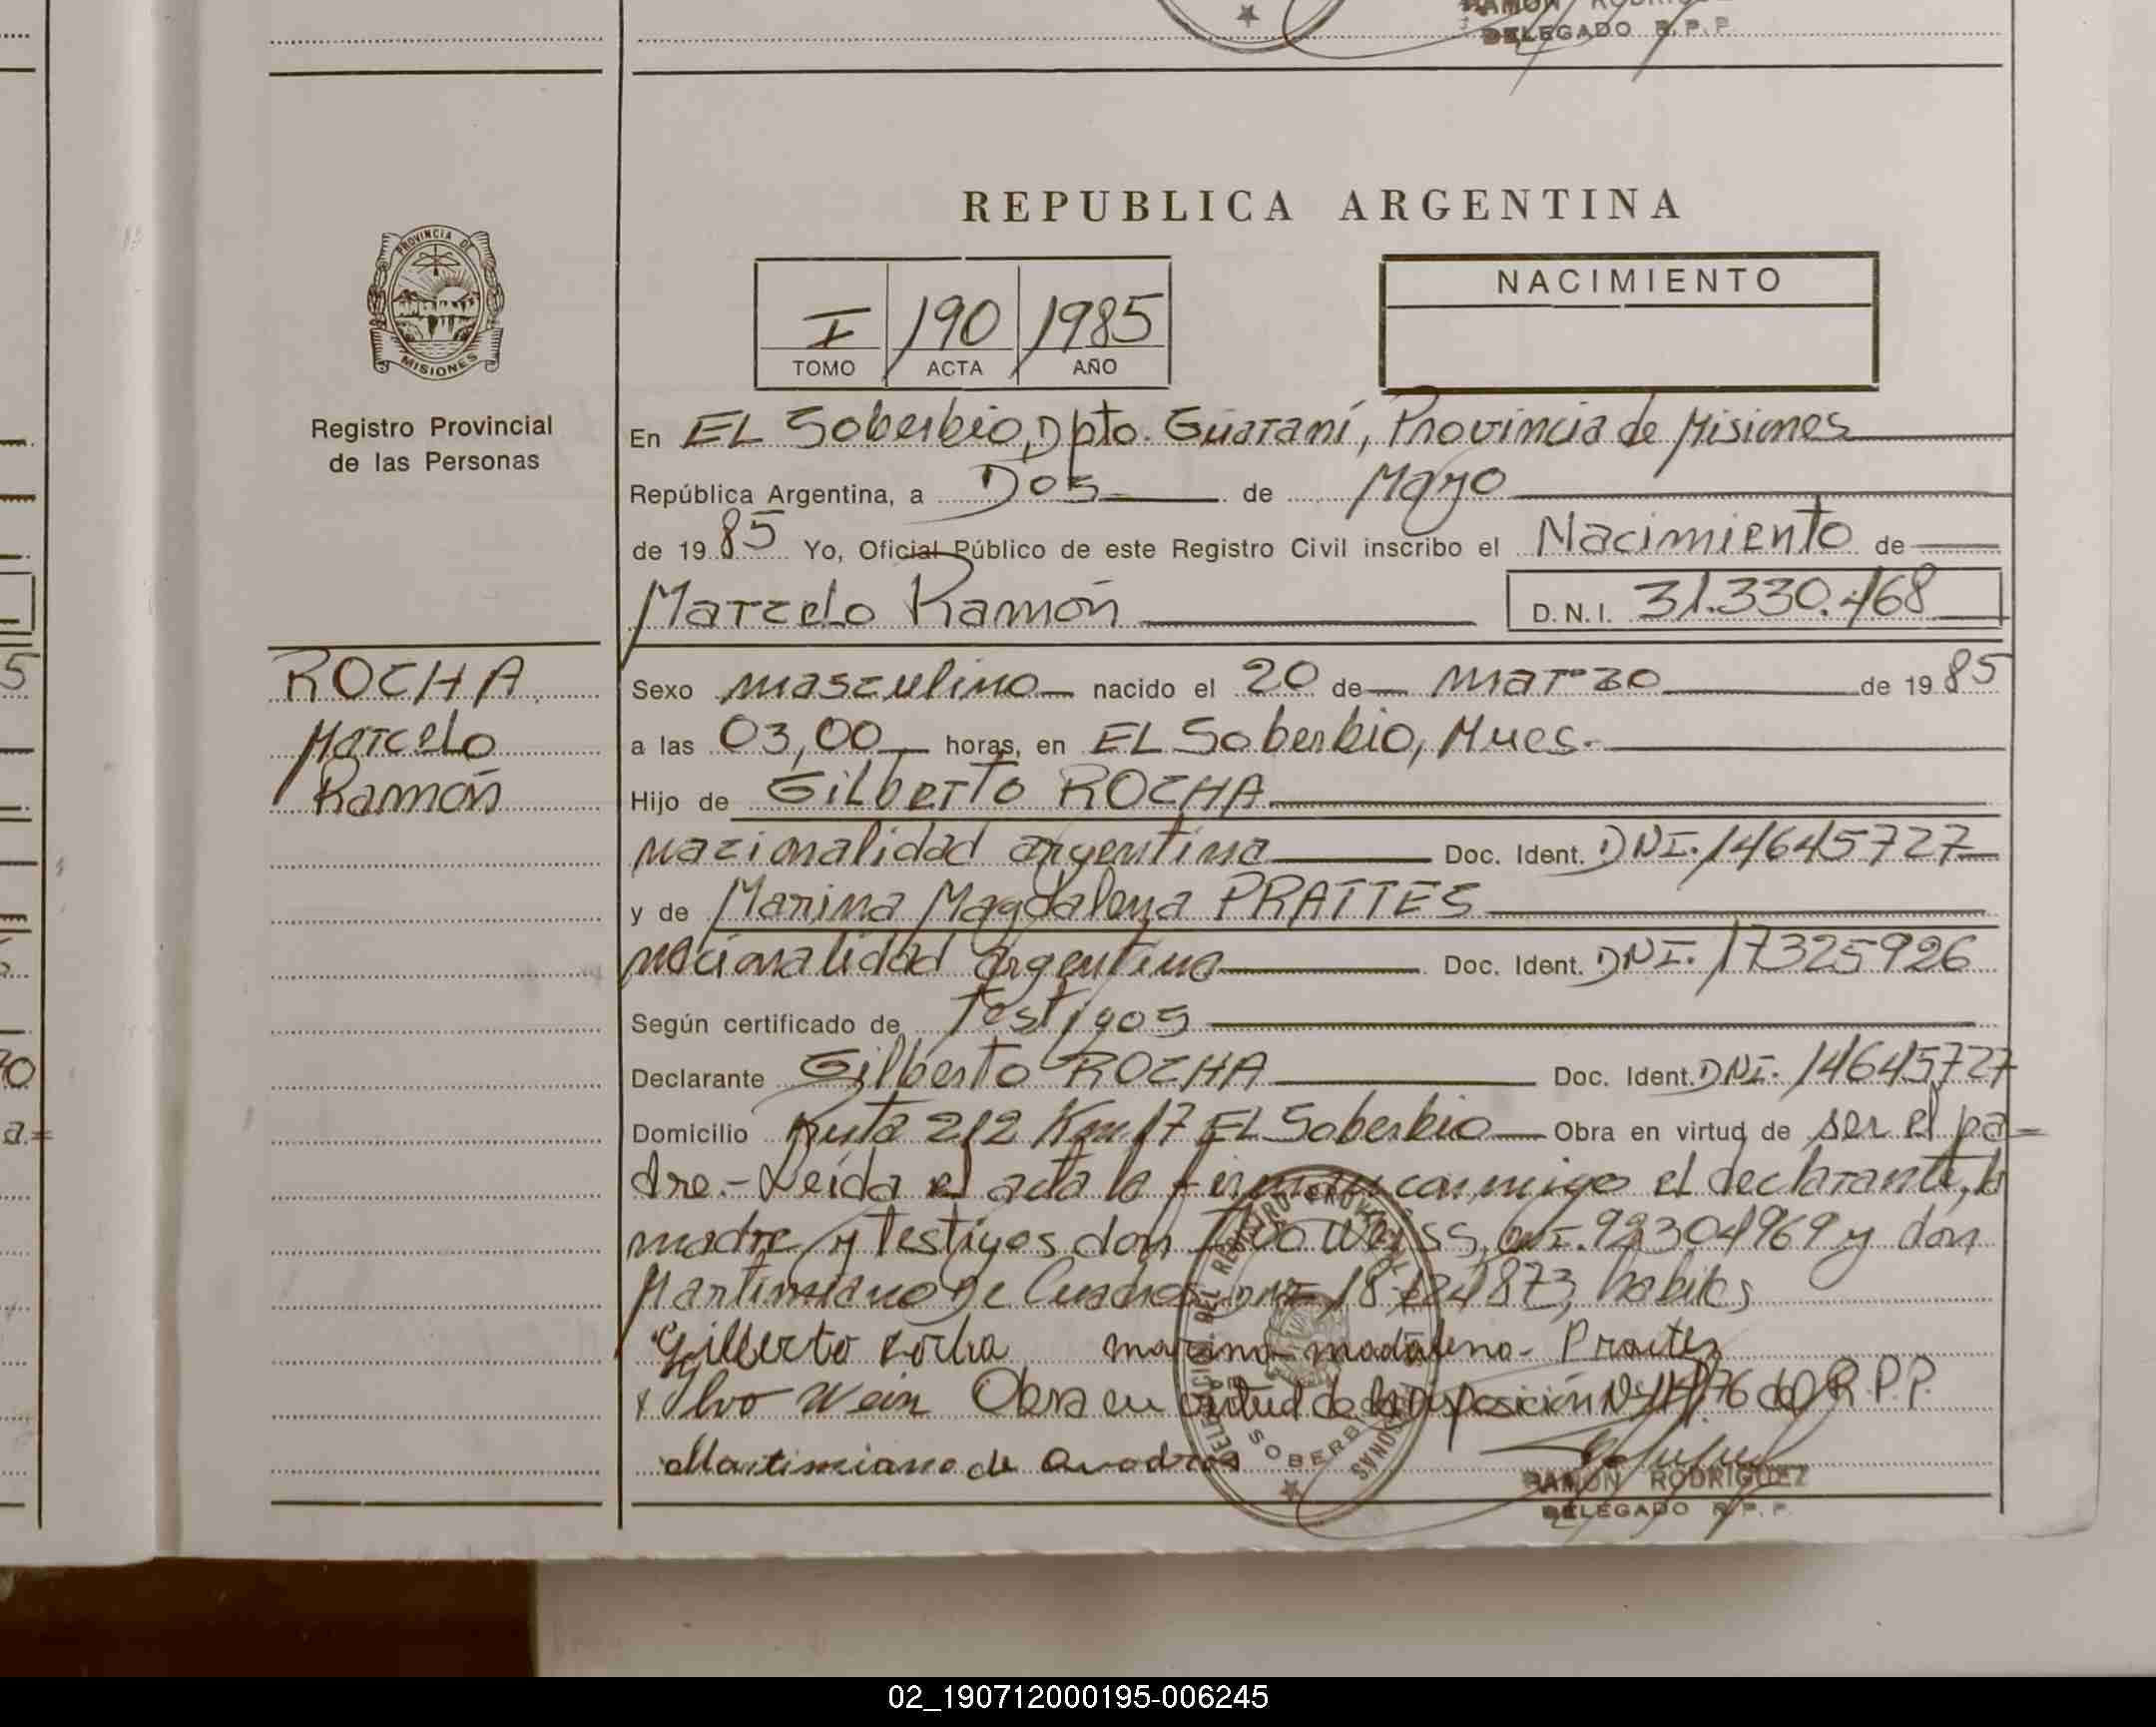 RAMON
DELEGADO R.P.P.
REPUBLICA ARGENTINA
PROVINCIA DE
MISIONES
NACIMIENTO
I 190 1985
TOMO ACTA AÑO
Registro Provincial
de las Personas
En EL Soberbio, Dpto. Guaraní, Provincia de Misiones
República Argentina, a Dos de Mayo
de 1985 Yo, Oficial Público de este Registro Civil inscribo el Nacimiento de
Marcelo Ramón D.N.I. 31.330.468
ROCHA
Marcelo
Ramón
Sexo masculino nacido el 20 de marzo de 1985
a las 03,00 horas, en EL Soberbio, Mnes.
Hijo de Gilberto ROCHA
nacionalidad argentina Doc. Ident. DNI. 14645727
y de Marina Magdalena PRATTES
nacionalidad argentina Doc. Ident. DNI. 17325926
Según certificado de Testigos
Declarante Gilberto ROCHA Doc. Ident. DNI. 14645727
Domicilio Ruta 212 Km 17 EL Soberbio Obra en virtud de ser el pa-
dre.- Leída el acta la firman conmigo el declarante, la
madre y Testigos don Weiss, 92304969 y don
Martimiano De Cuadros DNI 18 873, habiles
Gilberto rocha marina madalena Practes
Ilvo Wein Obra en virtud de la disposición Nº 11/76 del R.P.P.
Martimiano de Quadros
SOBERBIO
RAMON RODRIGUEZ
DELEGADO R.P.P.
02_190712000195-006245